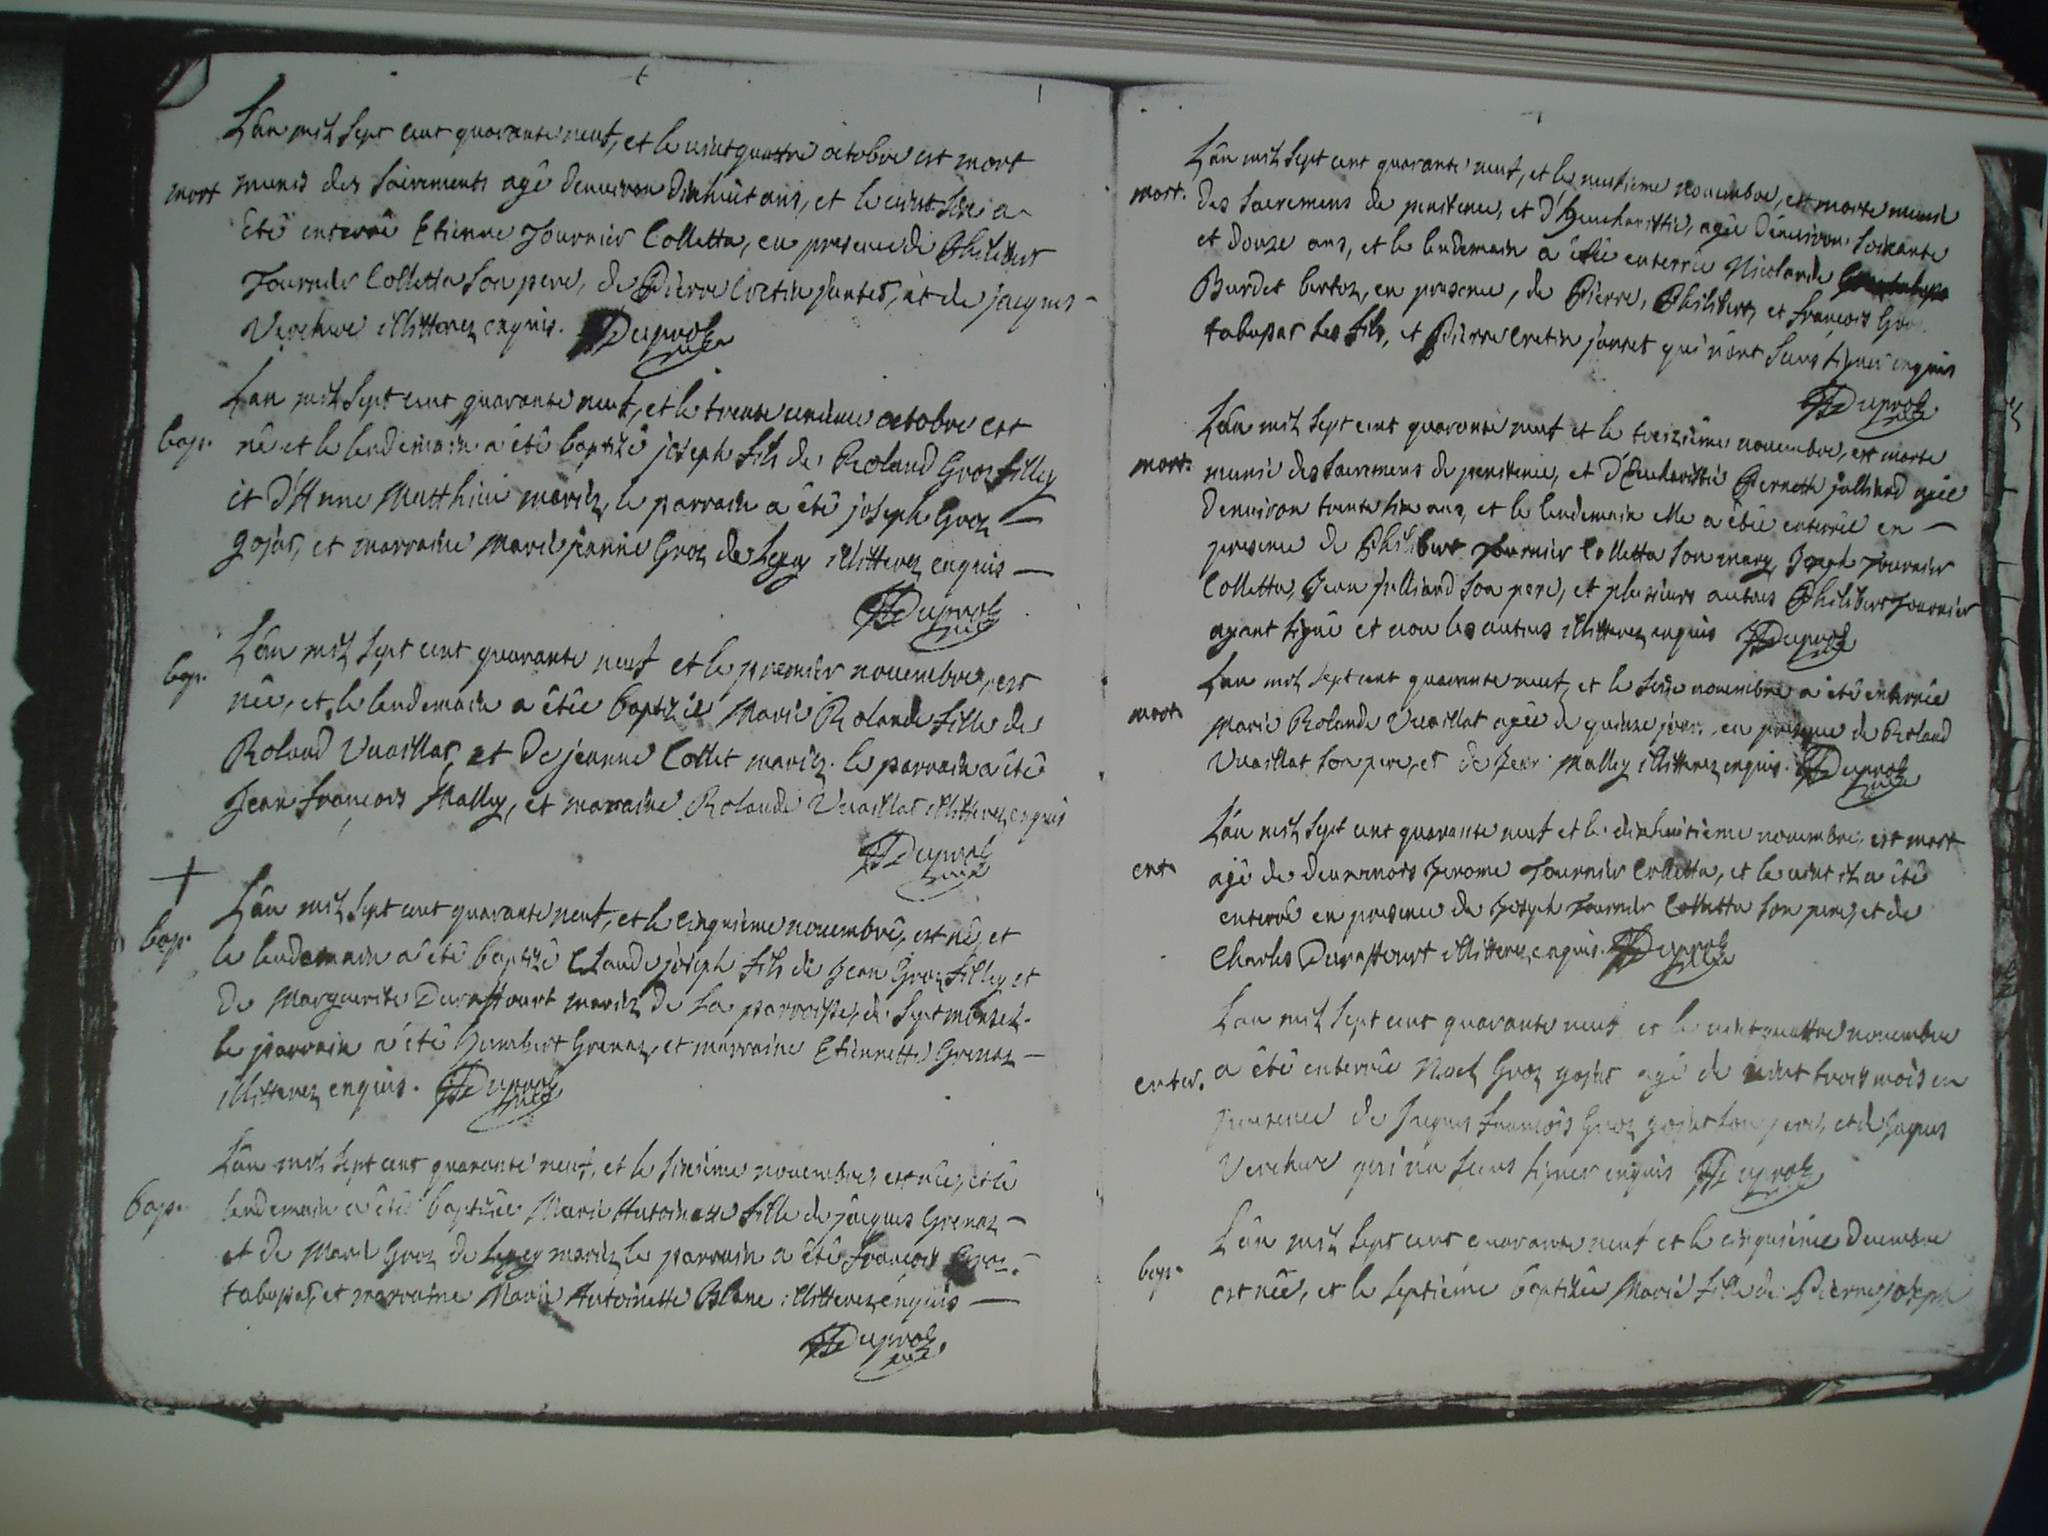 L'an mil sept cent quarante neuf, et le vint quattre octobre est mort
mort munis des sacrements agé denviron dixhuit ans, et le vint six a
été enterré Etienne Fournier Colletta, en presence de Philibert
Fournier Colletta son pere, de Pierre Cretin jantet, et de jacques
illitterez enquis. Duproz curé
L'an mil sept cent quarante neuf, et le trente unieme octobre est
bap. né et le lendemain a été baptizé joseph fils de Roland Groz filley
et d'Anne Matthieu mariez, le parrain a été joseph Groz
gojat, et marraine Marie jeanne Groz de legey illitterez enquis
Duproz curé
L'an mil sept cent quarante neuf et le premier novembre, est
bap. née, et le lendemain a êtée baptizée Marie Rolande fille de
Roland Vuaillat, et de jeanne Collet mariez. le parrain a été
Jean françois Malley, et marraine Rolande Vuaillat illitterez enquis
Duproz curé
L'an mil sept cent quarante neuf, et le cinquieme novembre, est né, et
bap. le lendemain a été baptizé Claude joseph fils de Jean Groz filley et
de Marguerite Duraffourt mariez de la parroisse de Septmoncel.
le parrain a été Humbert Grenaz, et marraine Etiennette Grenaz
illitterez enquis. Duproz curé
L'an mil sept cent quarante neuf, et le sixieme novembre, est née, et le
bap. lendemain a étée baptizée Marie Antoinette fille de jacques Grenaz
et de Marie Groz de legey mariez, le parrain a été françois Groz
tabupat, et marraine Marie Antoinette Blanc illitterez enquis
Duproz curé.
L'an mil sept cent quarante neuf, et le neufieme novembre, est morte munie
mort. des sacremens de penitence, et d'heucharistie, agée d'environ soixante
et douze ans, et le lendemain a êtée enterrée Nicolarde
Burdet bertoz, en presence, de Pierre, Philibert, et françois Groz
tabupat ses fils, et Pierre Cretin jantet qui n'ont sceus signer enquis
Duproz curé
L'an mil sept cent quarante neuf et le treizième novembre, est morte
mort. munie des sacremens de penitence, et d'Eucharistie Pernette julliard agée
denviron trente six ans, et le lendemain elle a êtée enterrée en
presence de Philibert Fournier Colletta son mary, Joseph Fournier
Colletta, Jean julliard son pere, et plusieurs autres Philibert Fournier
ayant signé et non les autres illitterez enquis Duproz curé
L'an mil sept cent quarante neuf, et le seize novembre a été enterrée
mort. Marie Rolande Vuaillat agée de quinze jours, en presence de Roland
Vuaillat son pere, et de Jean Malley illitterez enquis. Duproz curé
L'an mil sept cent quarante neuf et le dixhuitieme novembre, est mort
ent agé de deux mois Jerome Fournier Colletta, et le vint il a été
enterré en presence de Joseph Fournier Colletta son pere, et de
Charles Duraffourt illitterez enquis. Duproz curé
L'an mil sept cent quarante neuf et le vint quattre novembre
enter. a été enterrée Noel Groz gojat agé de vint trois mois en
presence de Jacques François Groz gojat son pere, et de Jacques
qui n'a sceus signer enquis Duproz curé
L'an mil sept cent quarante neuf et le cinquième decembre
bap. est née, et le septiéme baptizée Marie fille de Pierre joseph